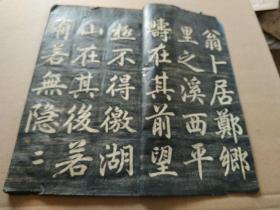 翁卜居鄭鄉
里之溪西平
疇在其前望
極不得徼湖
山在其後若
有若無隱二